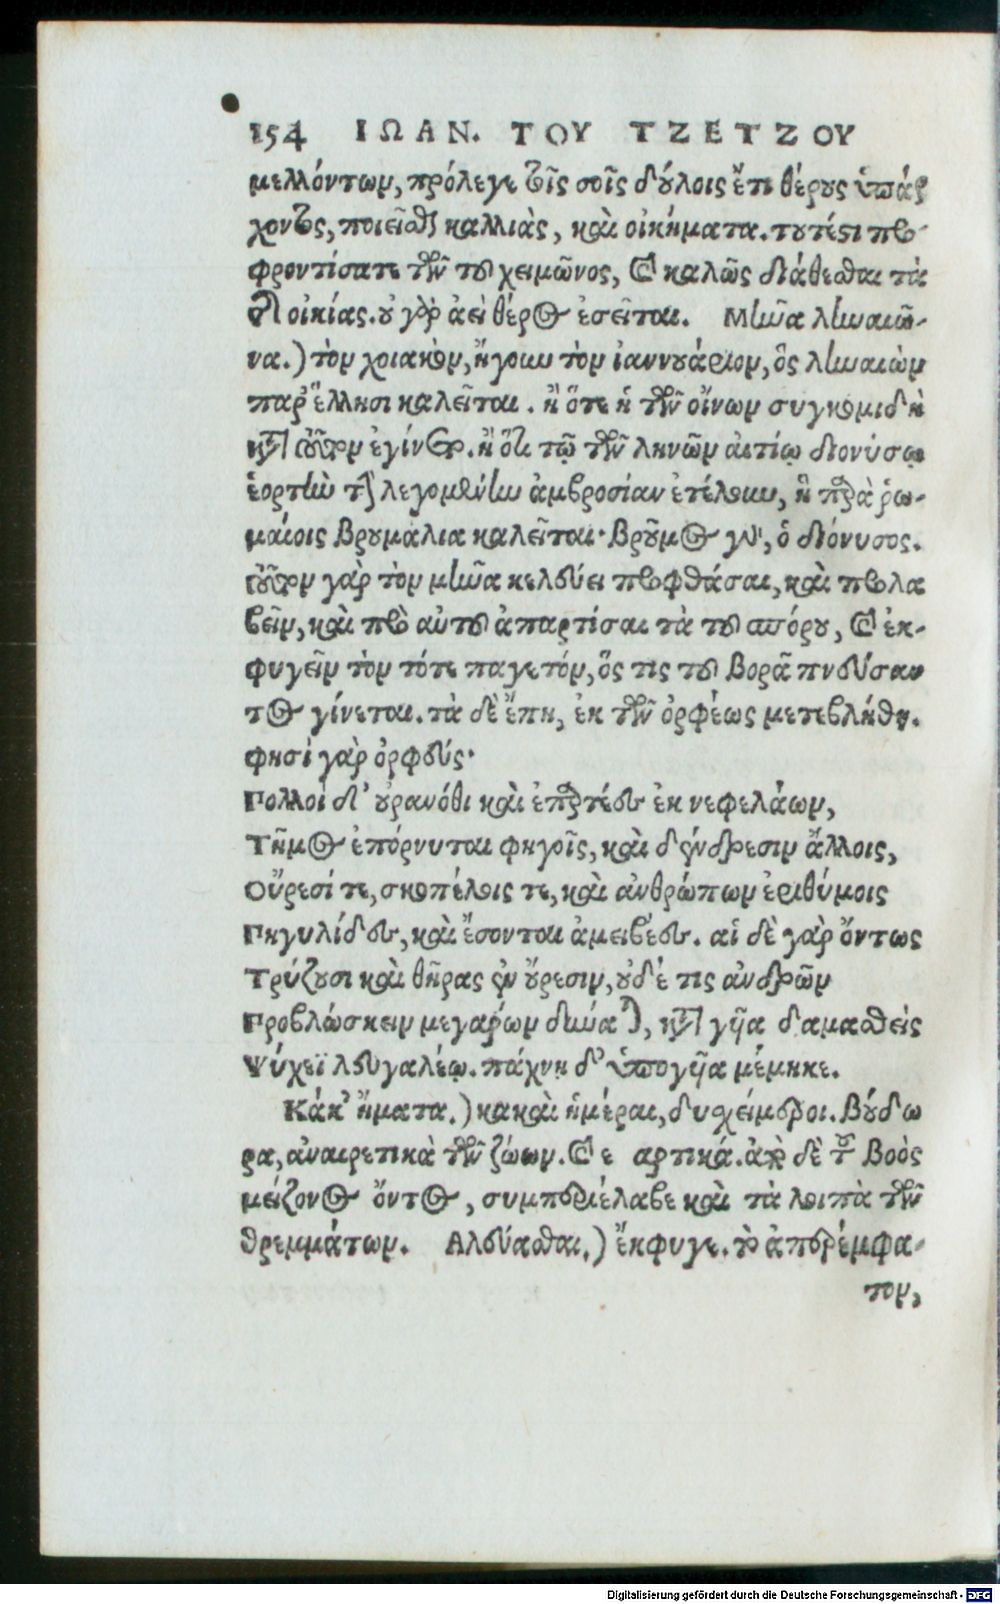 154 ΙΩΑΝ. ΤΟΥ ΤΖΕΤΖΟΥ
μελλόντων, πρόλεγε τοῖς σοῖς δούλοις ἔτι θέρους ὑπάρ
χοντος, ποιεῖσθε καλλιὰς, καὶ οἰκήματα. τουτέστι προ-
φροντίσατε τῶν τοῦ χειμῶνος, καὶ καλῶς διάθεσθαι τὰ
τῆς οἰκίας. οὐ γὰρ ἀεὶ θέρος ἐσεῖται. Μῆνα ληναιῶ-
να.) τὸν χοιακὸν, ἤγουν τὸν ἰαννουάριον, ὃς ληναιὼν
παρ' ἕλλησι καλεῖται. ἢ ὅτι ἡ τῶν οἴνων συγκομιδὴ
κατὰ τοῦτον ἐγίνετο. ἢ ὅτι τῷ τῶν ληνῶν αἰτίῳ διονύσῳ
ἑορτὴν τὴν λεγομένην ἀμβροσίαν ἐτέλουν, ἢ παρὰ ῥω-
μαίοις βρουμάλια καλεῖται. βροῦμος γὰρ, ὁ διόνυσος.
τοῦτον γὰρ τὸν μῆνα κελεύει προφθάσαι, καὶ προλα
βεῖν, καὶ πρὸ αὐτοῦ ἀπαρτίσαι τὰ τοῦ σπόρου, καὶ ἐκ-
φυγεῖν τὸν τότε παγετόν, ὅς τις τοῦ βορᾶ πνεύσαν
τος γίνεται. τὰ δὲ ἔπη, ἐκ τῶν ὀρφέως μετεβλήθη.
φησὶ γὰρ ὀρφεύς·
Πολλοὶ δ' οὐρανόθι καὶ ἐπαρτέες ἐκ νεφελάων,
Τῆμος ἐπόρνυται φηγοῖς, καὶ δένδρεσιν ἄλλοις,
Οὔρεσί τε, σκοπέλοις τε, καὶ ἀνθρώπων ἐριθύμοις
Πηγυλίδες, καὶ ἔσονται ἀμειβέες. αἱ δὲ γὰρ ὄντως
Τρύζουσι καὶ θῆρας ἐν οὔρεσιν, οὐδέ τις ἀνδρῶν
Προβλώσκειν μεγάρων δύναται, κατὰ γῆα δαμασθεὶς
Ψύχεϊ λευγαλέῳ. πάχνῃ δ' ὑπο γῆα μέμηκε.
Κάκ' ἤματα.) κακαὶ ἡμέραι, δυσχείμεροι. Βούδω
ρα, ἀναιρετικὰ τῶν ζώων. καὶ ε αρτικά. ἀπὸ δὲ τοῦ βοὸς
μείζονος ὄντος, συμπεριέλαβε καὶ τὰ λοιπὰ τῶν
θρεμμάτων. Αλεύασθαι.) ἔκφυγε. τὸ ἀπαρέμφα-
τον,
Digitalisierung gefördert durch die Deutsche Forschungsgemeinschaft - DFG